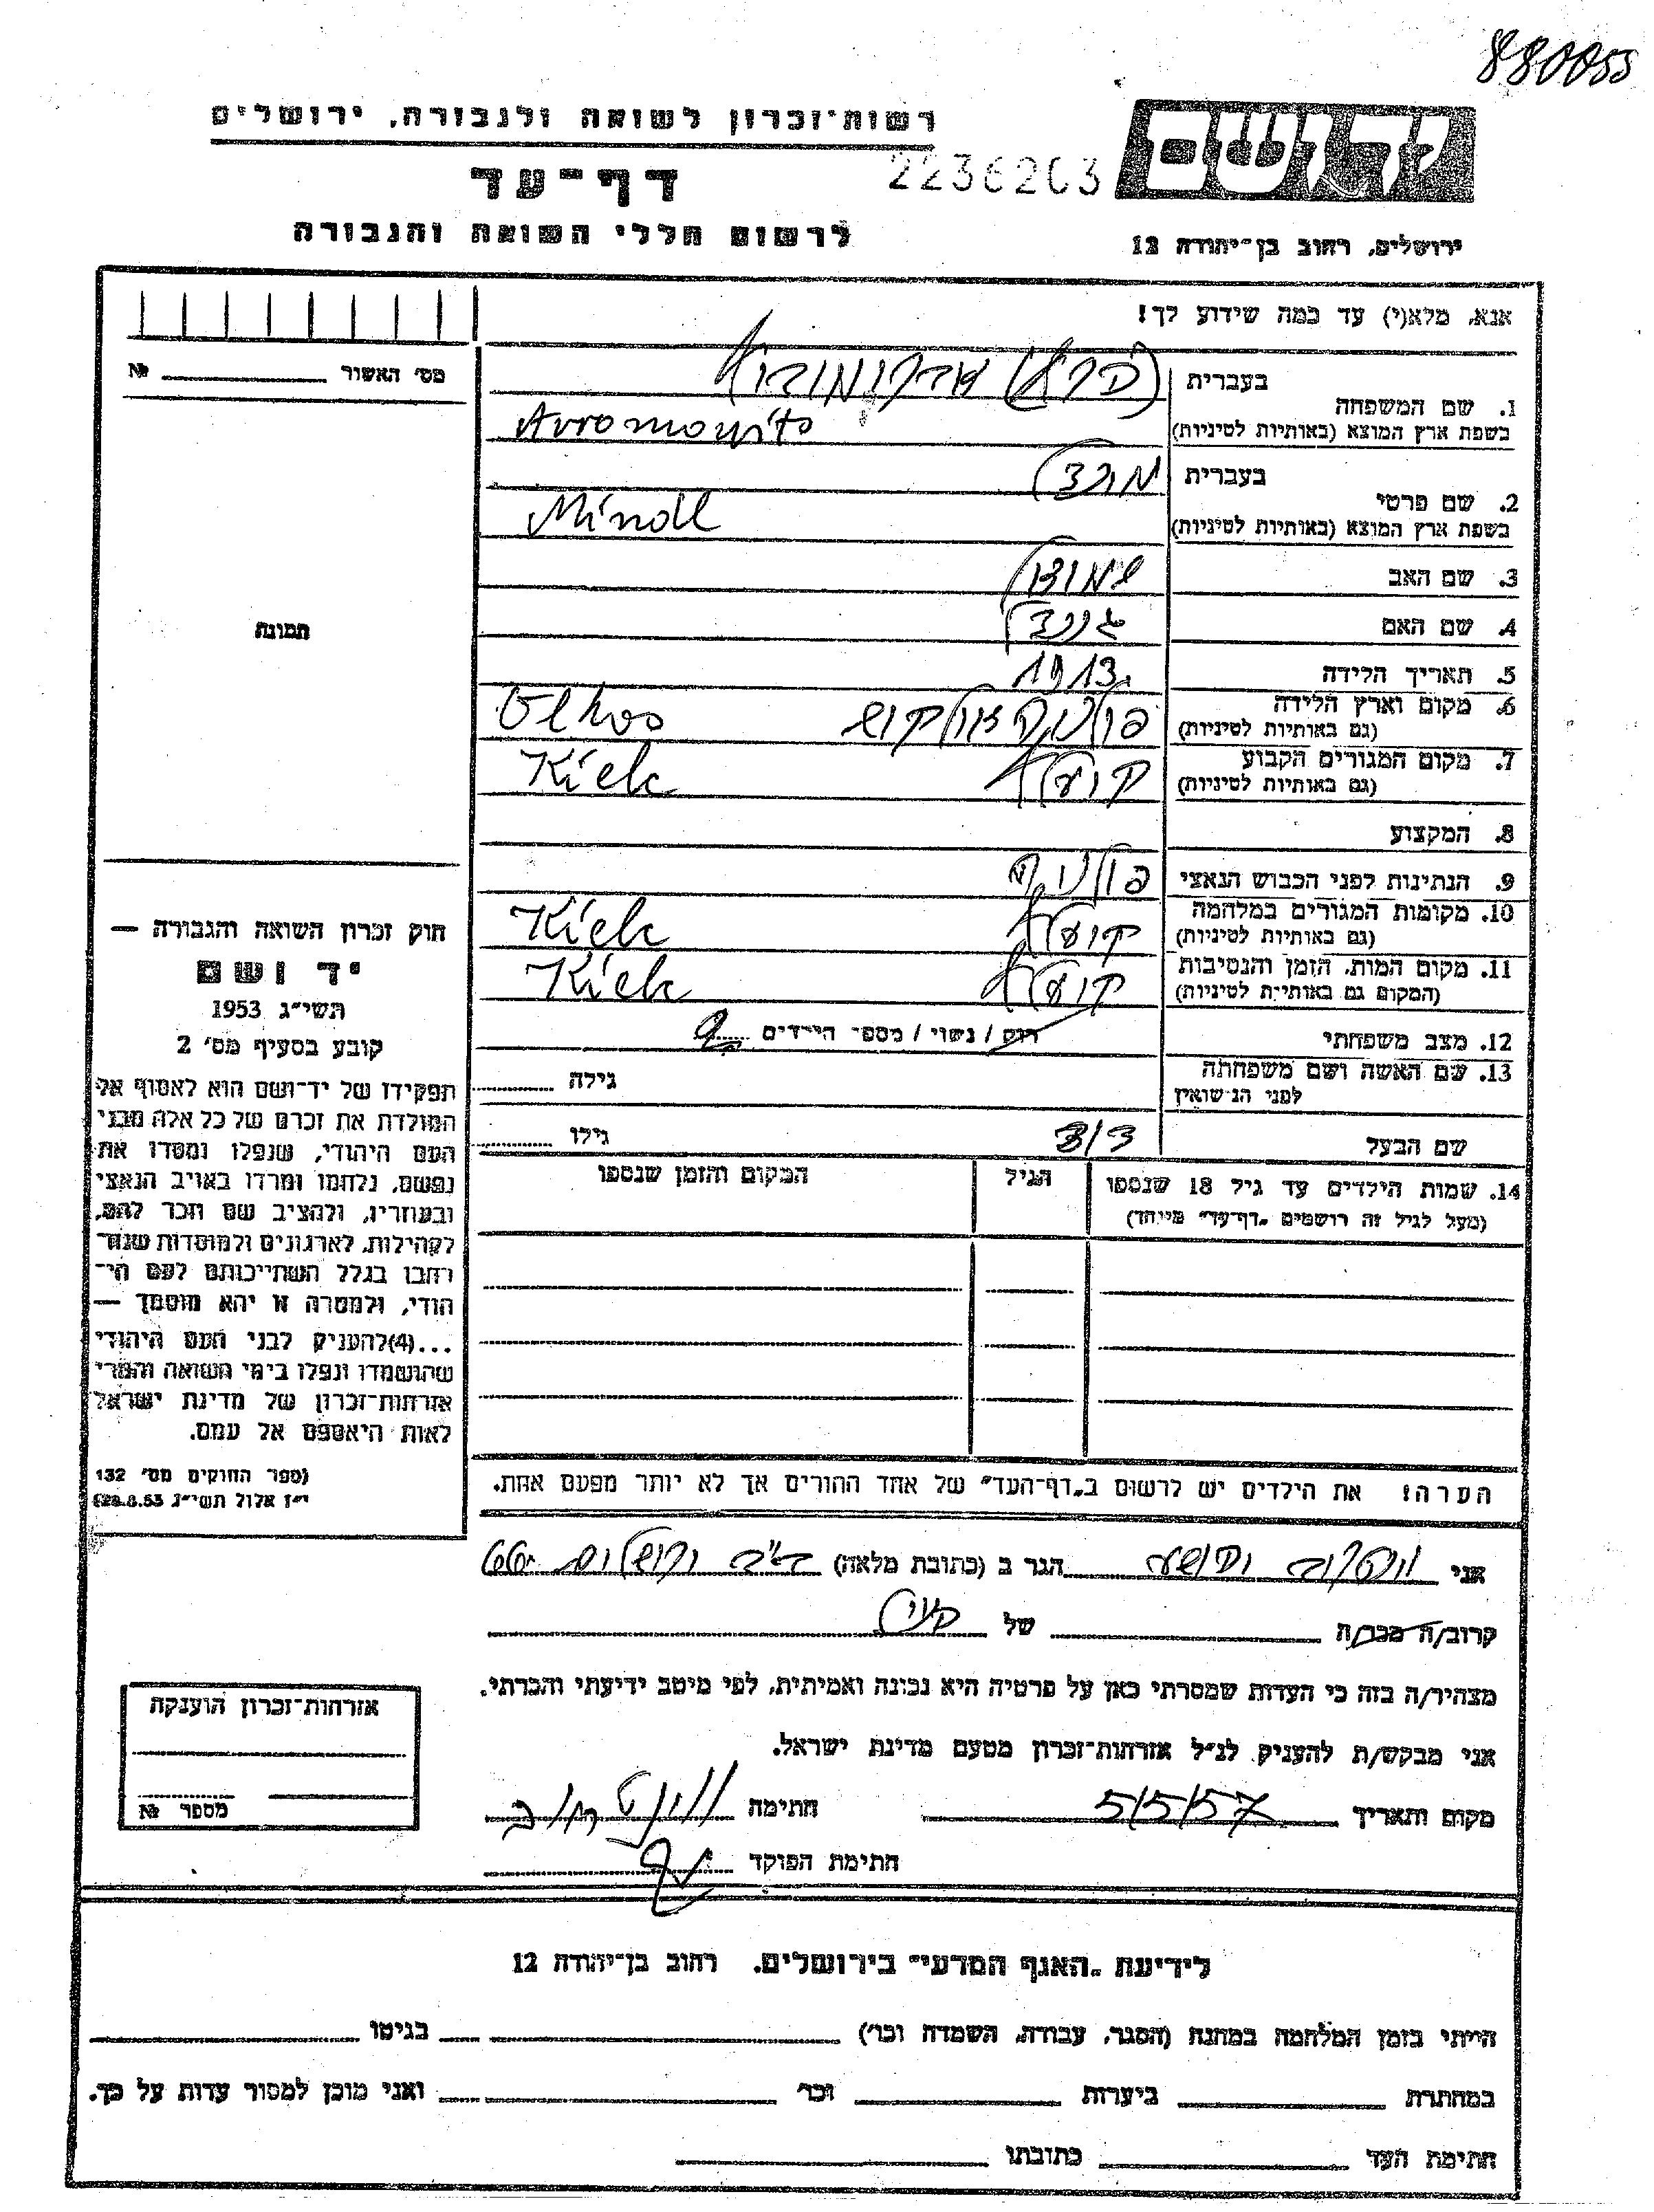 880055
רשות־זכרון לשואה ולגבורה, ירושלים
יד ושם
דף־עד
2236203
לרשום חללי השואה והגבורה
ירושלים, רחוב בן־יהודה 12
אנא, מלא(י) עד כמה שידוע לך!
מס׳ האשור № 
1. שם המשפחה
בעברית
בשפת ארץ המוצא (באותיות לטיניות)
2. שם פרטי
בעברית
בשפת ארץ המוצא (באותיות לטיניות) Mindl
3. שם האב
4. שם האם
5. תאריך הלידה 1913
6. מקום וארץ הלידה
(גם באותיות לטיניות) Olkos
7. מקום המגורים הקבוע
(גם באותיות לטיניות) Kielc
8. המקצוע
9. הנתינות לפני הכבוש הנאצי פולניה
10. מקומות המגורים במלחמה
(גם באותיות לטיניות) Kielc
11. מקום המות, הזמן והנסיבות
(המקום גם באותיות לטיניות) Kielc
12. מצב משפחתי רווק / נשוי / מספר הילדים
13. שם האשה ושם משפחתה
לפני הנישואין
גילה
שם הבעל
גילו
תמונה
14. שמות הילדים עד גיל 18 שנספו
(מעל לגיל זה רושמים „דף־עד״ מיוחד)
הגיל
המקום והזמן שנספו
הערה! את הילדים יש לרשום ב„דף־העד״ של אחד ההורים אך לא יותר מפעם אחת.
חוק זכרון השואה והגבורה —
יד ושם
תשי״ג 1953
קובע בסעיף מס׳ 2
תפקידו של יד־ושם הוא לאסוף אל
המולדת את זכרם של כל אלה מבני
העם היהודי, שנפלו ומסרו את
נפשם, נלחמו ומרדו באויב הנאצי
ובעוזריו, ולהציב שם וזכר להם,
לקהילות, לארגונים ולמוסדות שנח־
רבו בגלל השתייכותם לעם הי־
הודי, ולמטרה זו יהא מוסמך —
...(4)להעניק לבני העם היהודי
שהושמדו ונפלו בימי השואה והמרי
אזרחות־זכרון של מדינת ישראל
לאות היאספם אל עמם.
(ספר החוקים מס׳ 132
י״ז אלול תשי״ג 28.8.53)
אני
הגר ב (כתובת מלאה)
קרוב/ה מכר/ה של
מצהיר/ה בזה כי העדות שמסרתי כאן על פרטיה היא נכונה ואמיתית, לפי מיטב ידיעתי והכרתי.
אני מבקש/ת להעניק לנ״ל אזרחות־זכרון מטעם מדינת ישראל.
מקום ותאריך 5/5/57 חתימה
חתימת הפוקד
אזרחות־זכרון הוענקה
מספר №
לידיעת „האגף המדעי״ בירושלים, רחוב בן־יהודה 12
הייתי בזמן המלחמה במחנה (הסגר, עבודה, השמדה וכו׳) בגיטו
במחתרת ביערות וכו׳ ואני מוכן למסור עדות על כך.
חתימת העד כתובתו